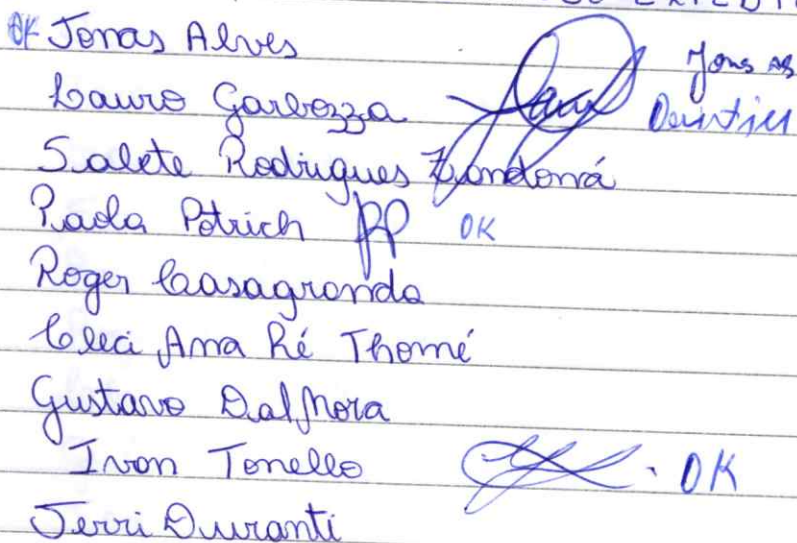 OK Jonas Alves
Lauro Garbozza
Salete Rodrigues Zandoná
Paola Potrich PP OK
Roger Casagranda
Cleci Ana Ré Thomé
Gustavo Dal Mora
Ivan Tonello OK
Jerri Duranti